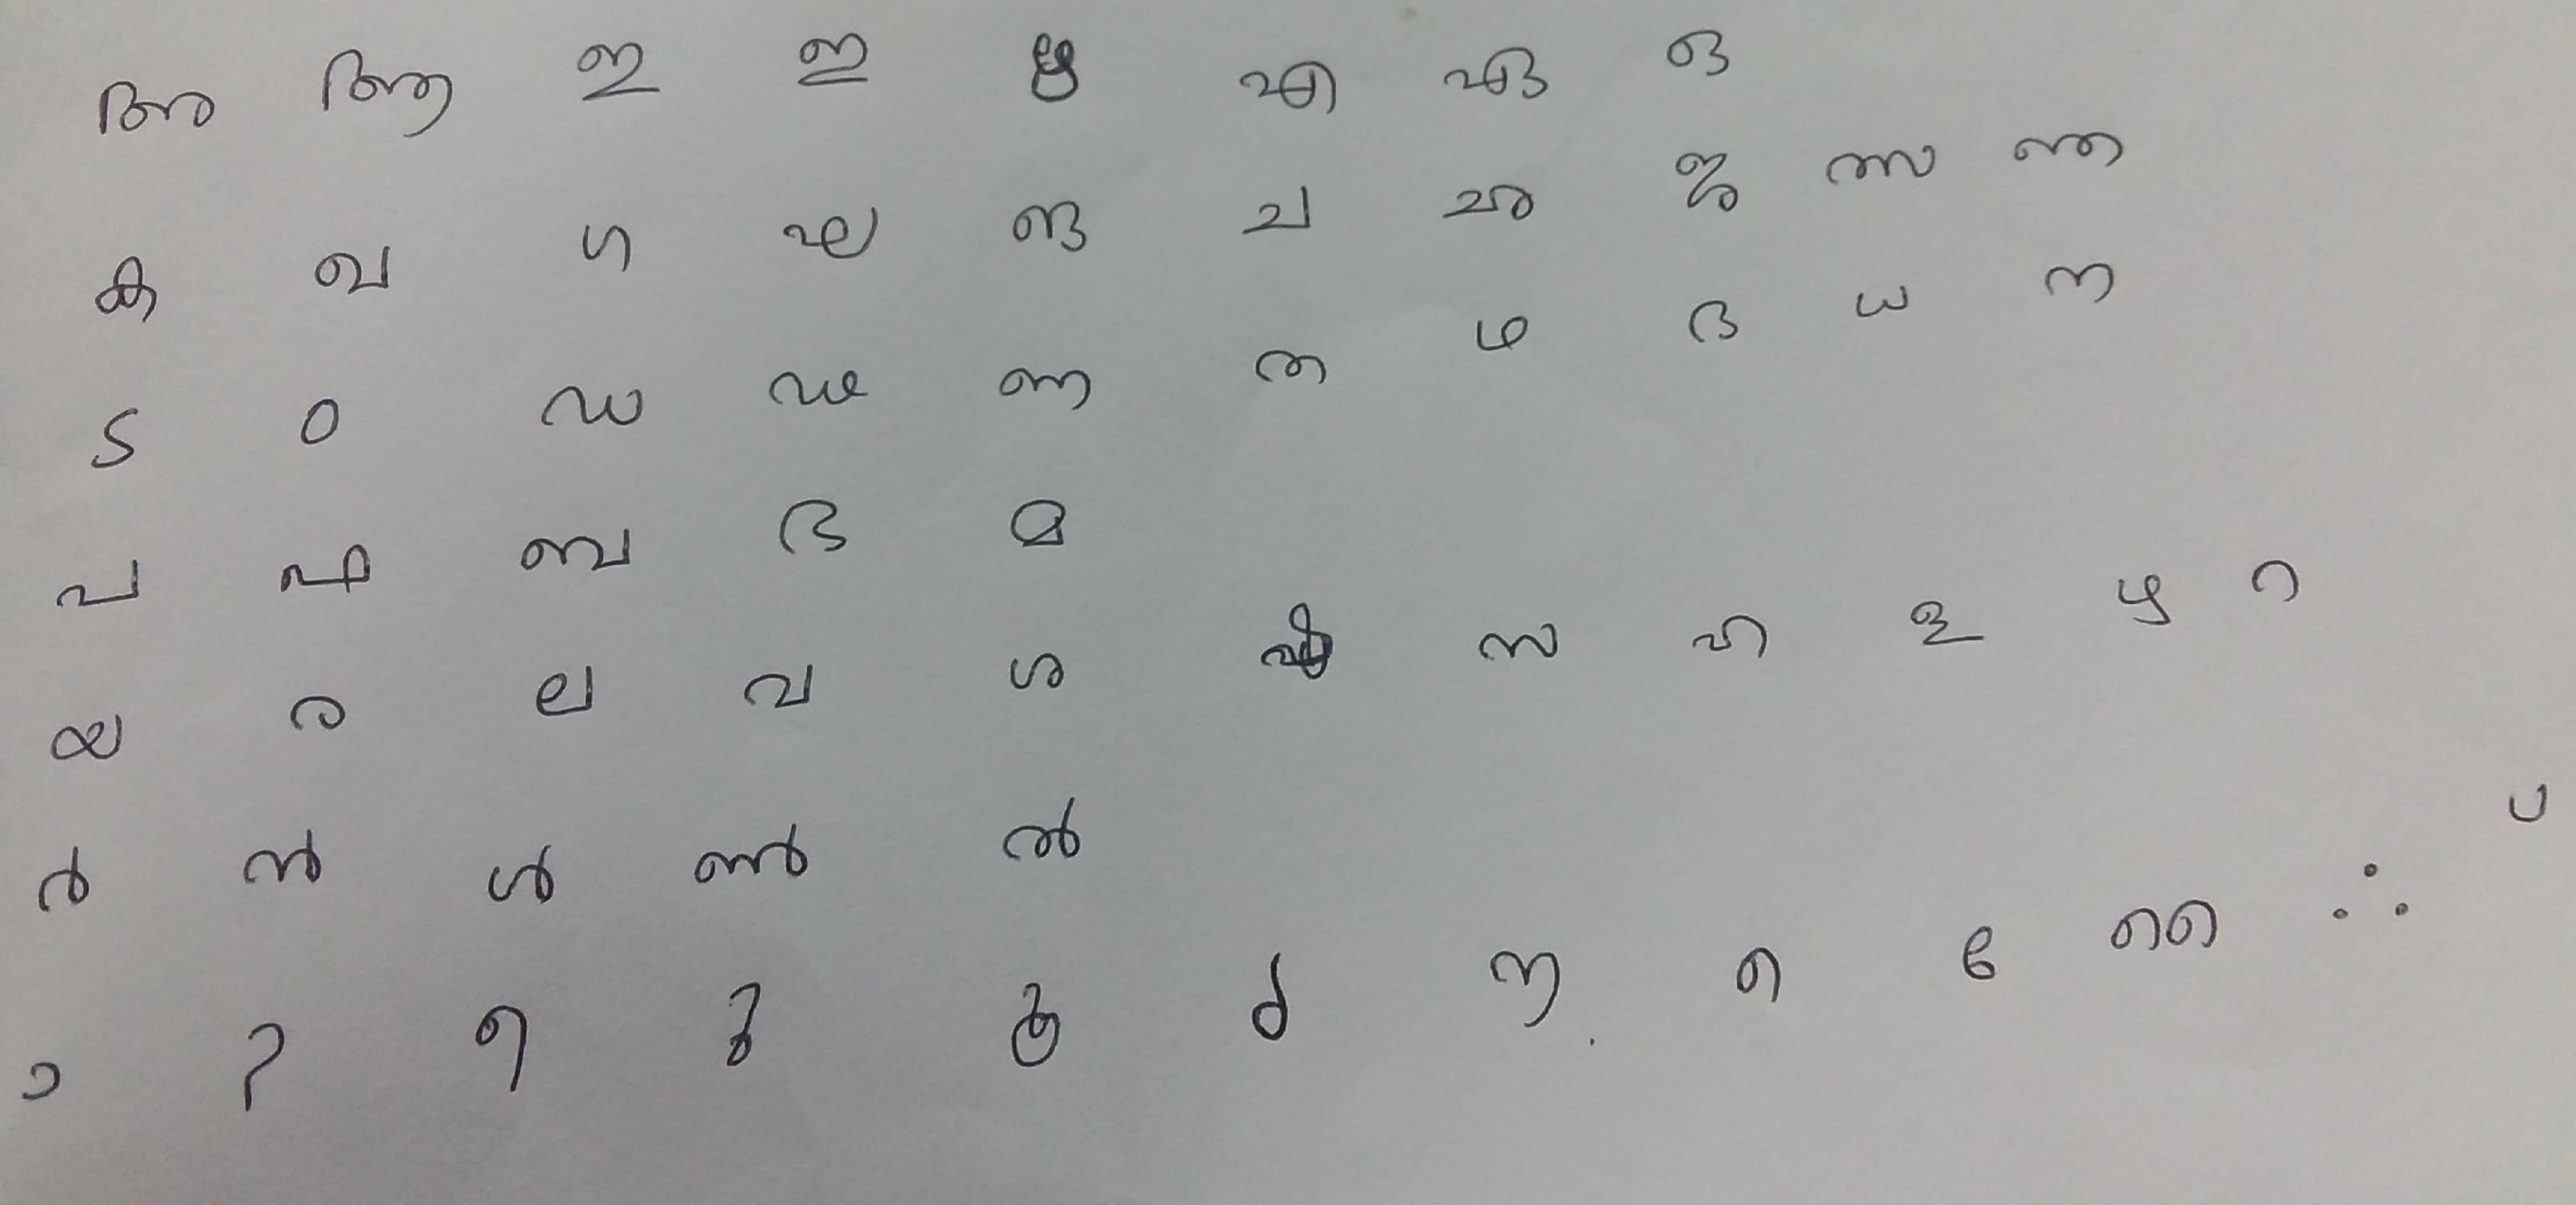 അ ആ ഇ ഇ ഋ എ ഏ ഒ
ക ഖ ഗ ഘ ങ ച ഛ ജ ഝ ഞ
ട ഠ ഡ ഢ ണ ത ഥ ദ ധ ന
പ ഫ ബ ഭ മ
യ ര ല വ ശ ഷ സ ഹ ള ഴ റ
ർ ൻ ൾ ൺ ൽ
ാ ി ീ ു ൂ െ േ ൈ